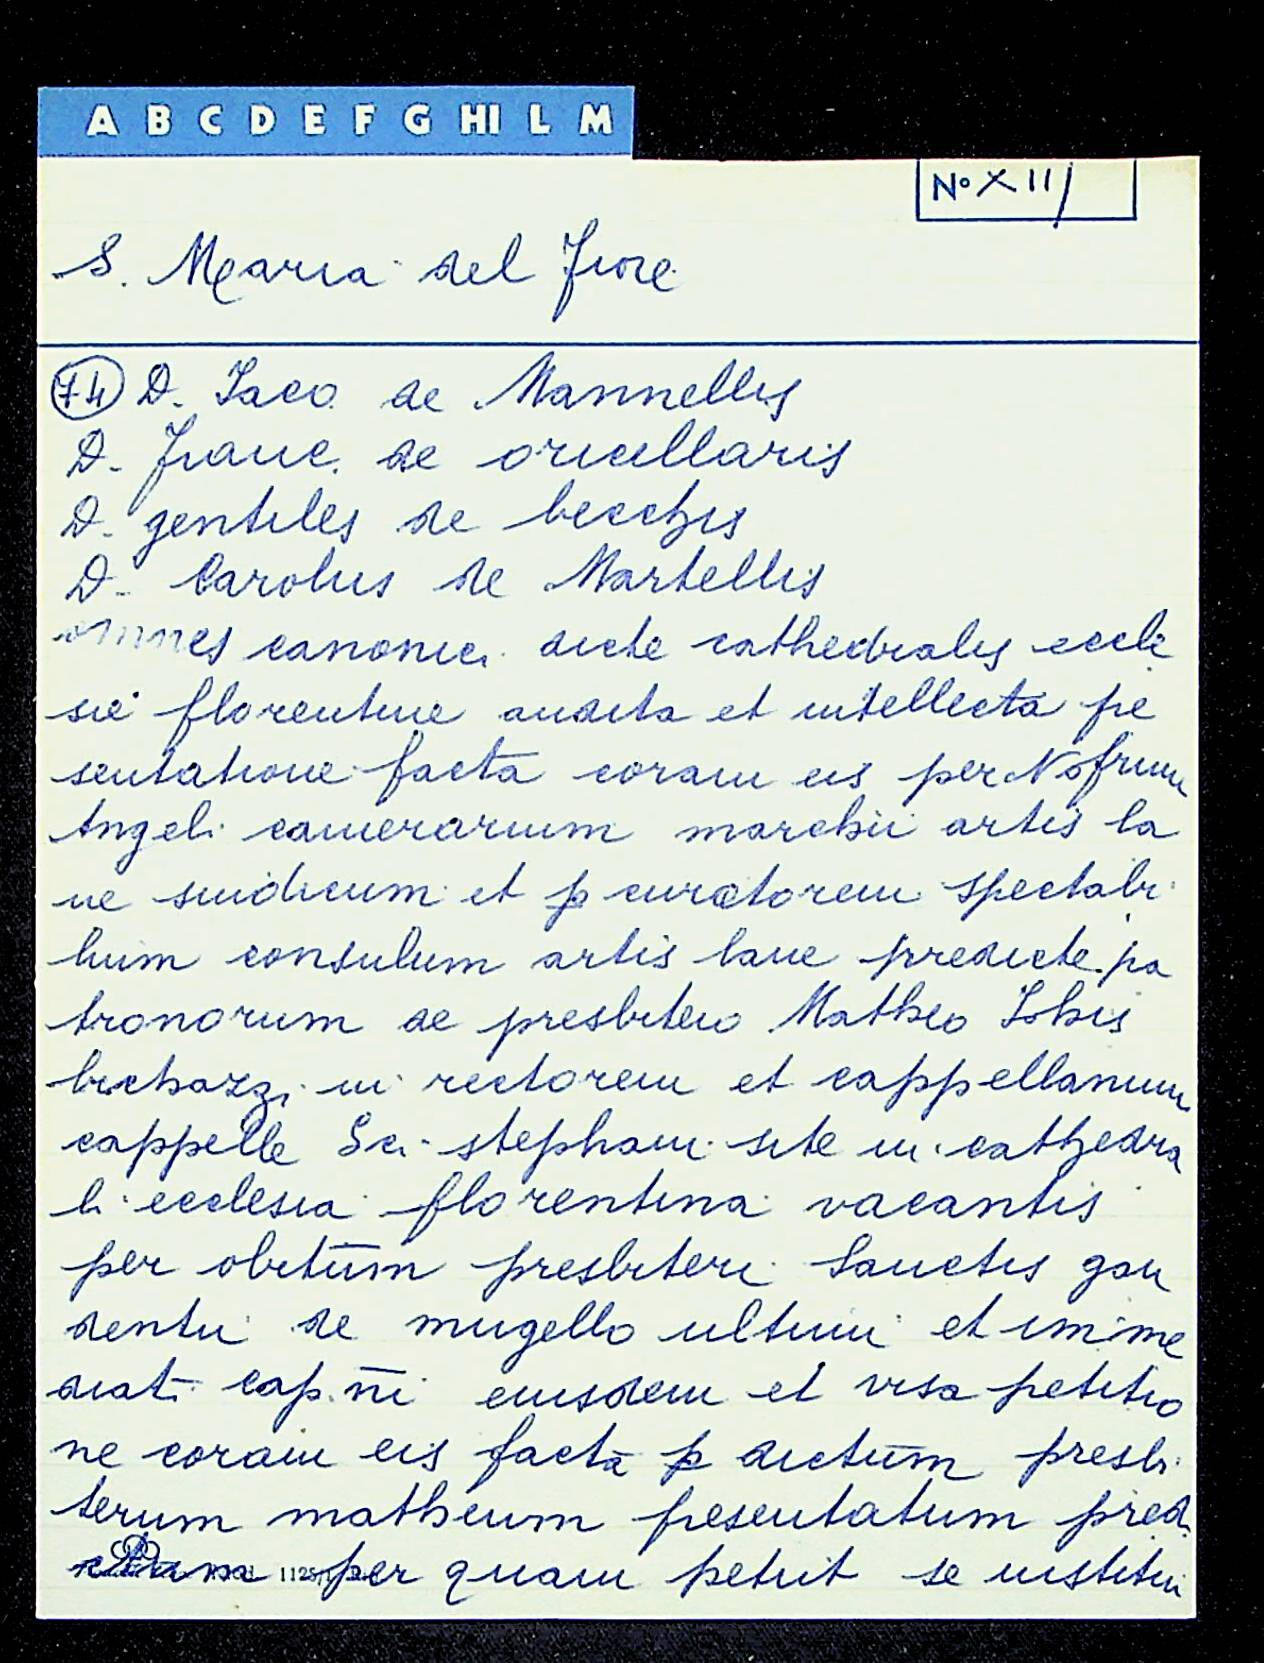 A B C D E F G HI L M
No XII/
S. Maria del Fiore
74 D. Iaco. de Mannellis
D. franc. de oricellaris
D. gentiles de becchis
D. Carolus de Martellis
omnes canonici dicte cathedralis eccle
sie florentine audita et intellecta pe
sentatione facta coram eis per Nofrium
Angeli camerarium marchii artis la
ne sindicum et p curatorem spectabi
lium consulum artis lane predicte pa
tronorum de presbitero Matheo Iohis
bichazzi in rectorem et cappellanum
cappelle Sci. stephani site in cathedra
li ecclesia florentina vacantis
per obitum presbiteri Sanctis gau
dentii de mugello ultimi et imme
diati cap.ni eiusdem et visa petitio
ne coram eis facta p dictum presbi
terum matheum presentatum pred.
1125 per quam petiit se institui